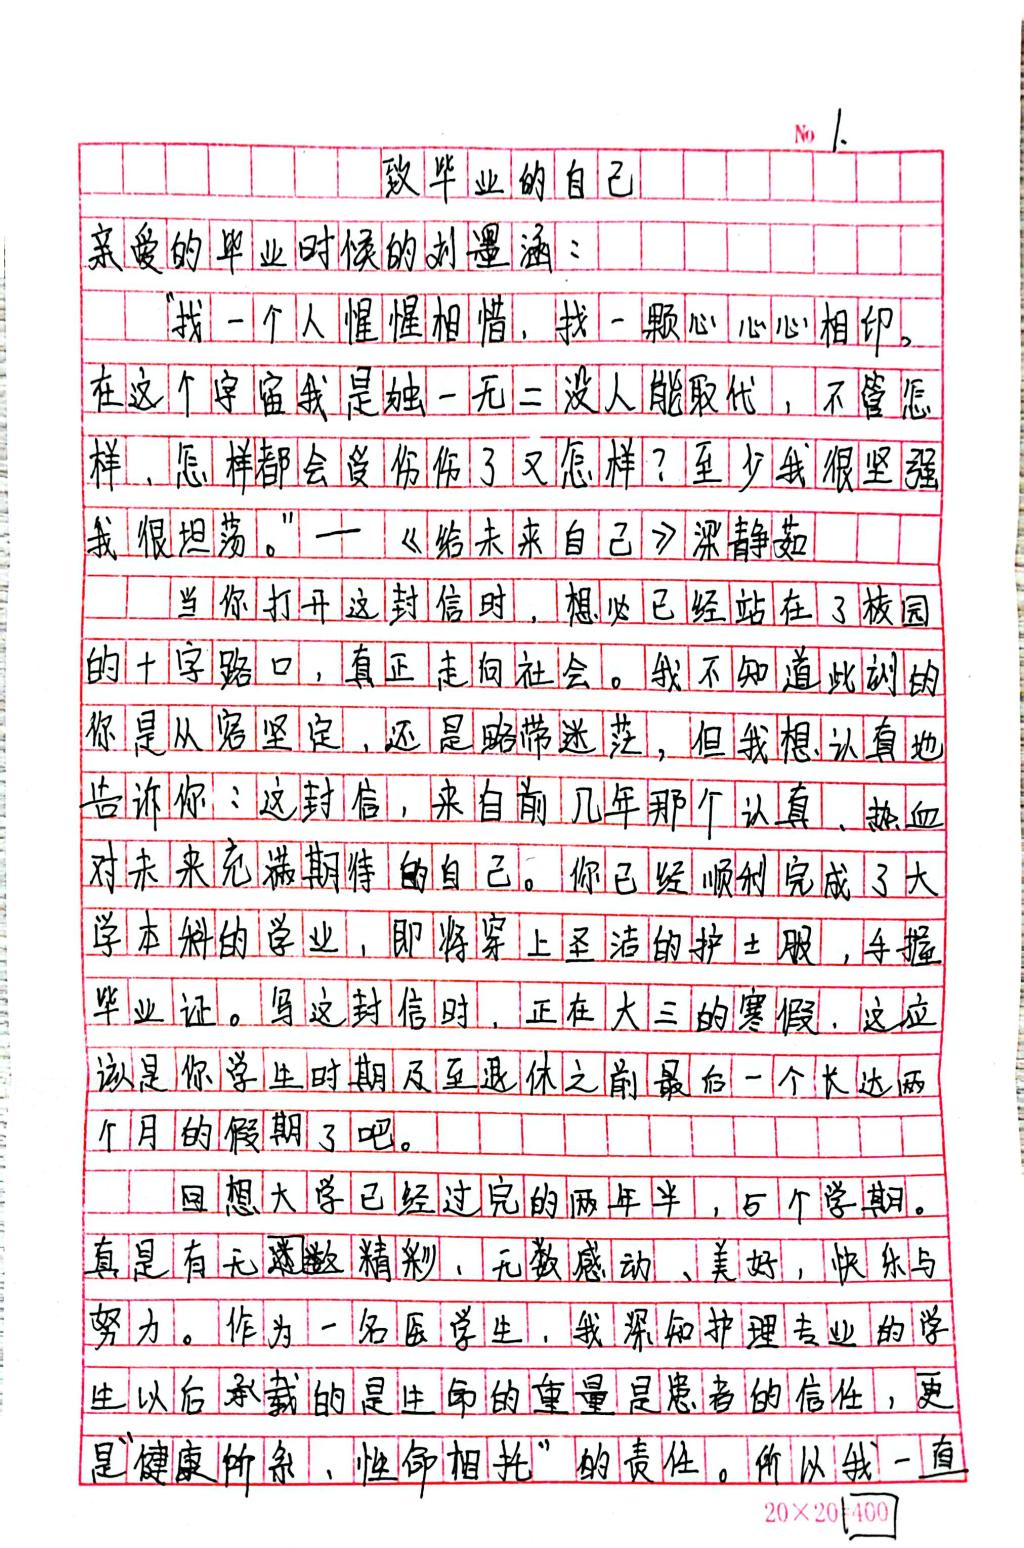 No 1.
致毕业的自己
亲爱的毕业时候的刘墨涵：
“找一个人惺惺相惜，找一颗心心心相印。
在这个宇宙我是独一无二没人能取代，不管怎
样，怎样都会受伤伤了又怎样？至少我很坚强
我很坦荡。”一《给未来自己》梁静茹
当你打开这封信时，想必已经站在了校园
的十字路口，真正走向社会。我不知道此刻的
你是从容坚定，还是略带迷茫，但我想认真地
告诉你：这封信，来自前几年那个认真、热血
对未来充满期待的自己。你已经顺利完成了大
学本科的学业，即将穿上圣洁的护士服，手握
毕业证。写这封信时，正在大三的寒假，这应
该是你学生时期及至退休之前最后一个长达两
个月的假期了吧。
回想大学已经过完的两年半，5个学期。
真是有无数精彩、无数感动、美好，快乐与
努力。作为一名医学生，我深知护理专业的学
生以后承载的是生命的重量是患者的信任，更
是“健康所系，性命相托”的责任。所以我一直
20×20=400